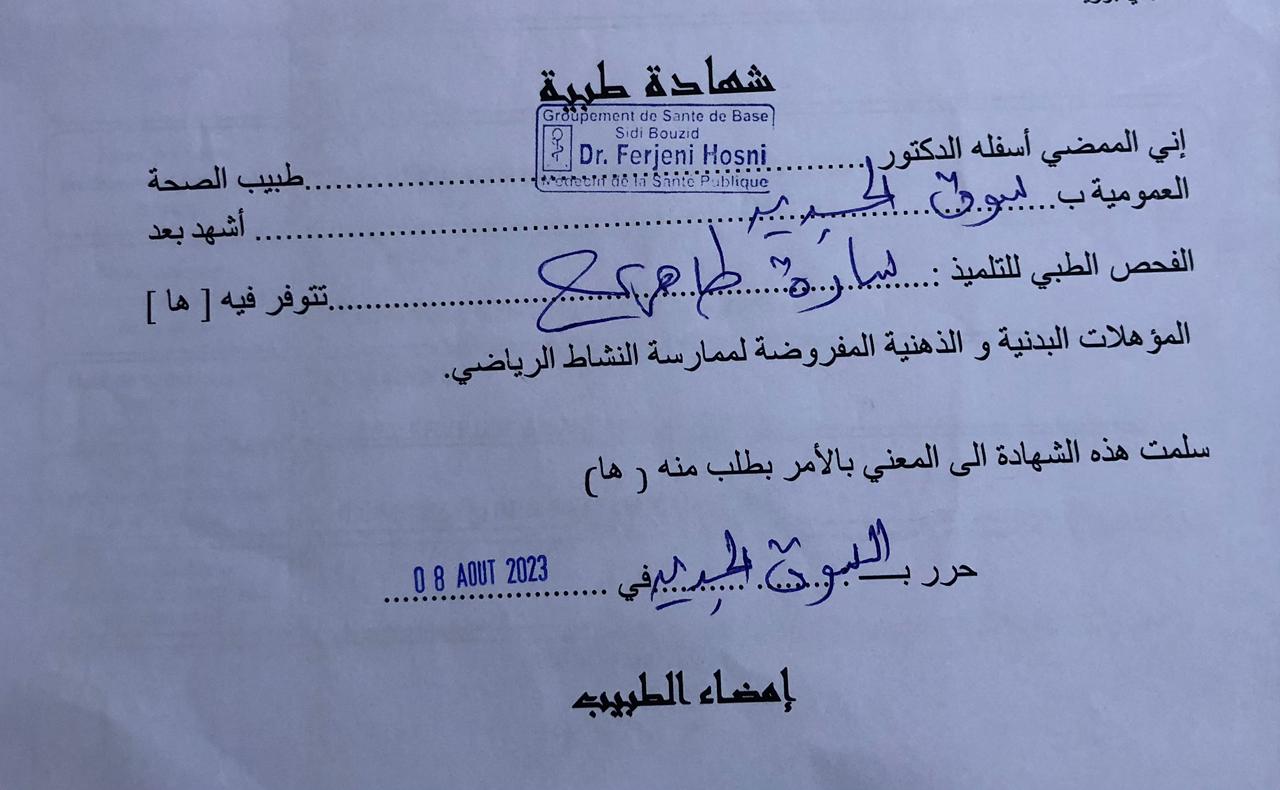 شهادة طبية
Groupement de Sante de Base
Sidi Bouzid
Dr. Ferjeni Hosni
Medecin de la Sante Publique
إني الممضي أسفله الدكتور ........ طبيب الصحة
العمومية ب.... سوق الجديد ........ أشهد بعد
الفحص الطبي للتلميذ : سارة ........ تتوفر فيه [ ها ]
المؤهلات البدنية و الذهنية المفروضة لممارسة النشاط الرياضي.
سلمت هذه الشهادة الى المعني بالأمر بطلب منه ( ها)
حرر بـ السوق الجديد في 08 AOUT 2023
إمضاء الطبيب